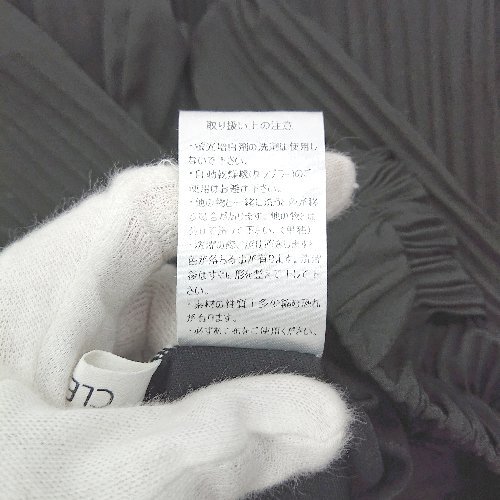 取り扱い上の注意
・蛍光増白剤の洗剤は使用し
ないで下さい。
・自動乾燥機(タンブラー)のご
使用はお避け下さい。
・他の物と一緒に洗うと色が移
る場合があります。他の物とは
分けて洗って下さい。(単独)
色が落ちる事が有ります。洗濯
後はすぐに形を整えて干して下
さい。
・素材の性質上多少縮の恐れ
が有ります。
・必ずあて布をご使用ください。
CLE